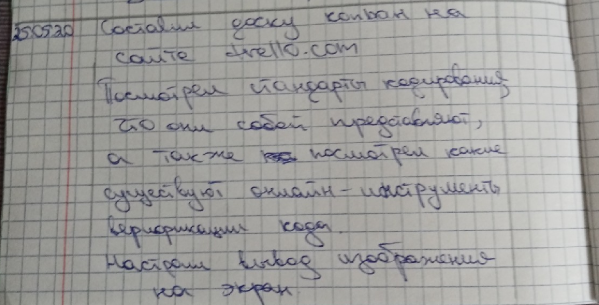 25.05.20 Составил доску канбан на
сайте trello.com
Посмотрел стандарты кодирования
что они собой представляют,
а также посмотрел какие
существуют онлайн-инструменты
верификации кода.
Настроил вывод изображения
на экран.